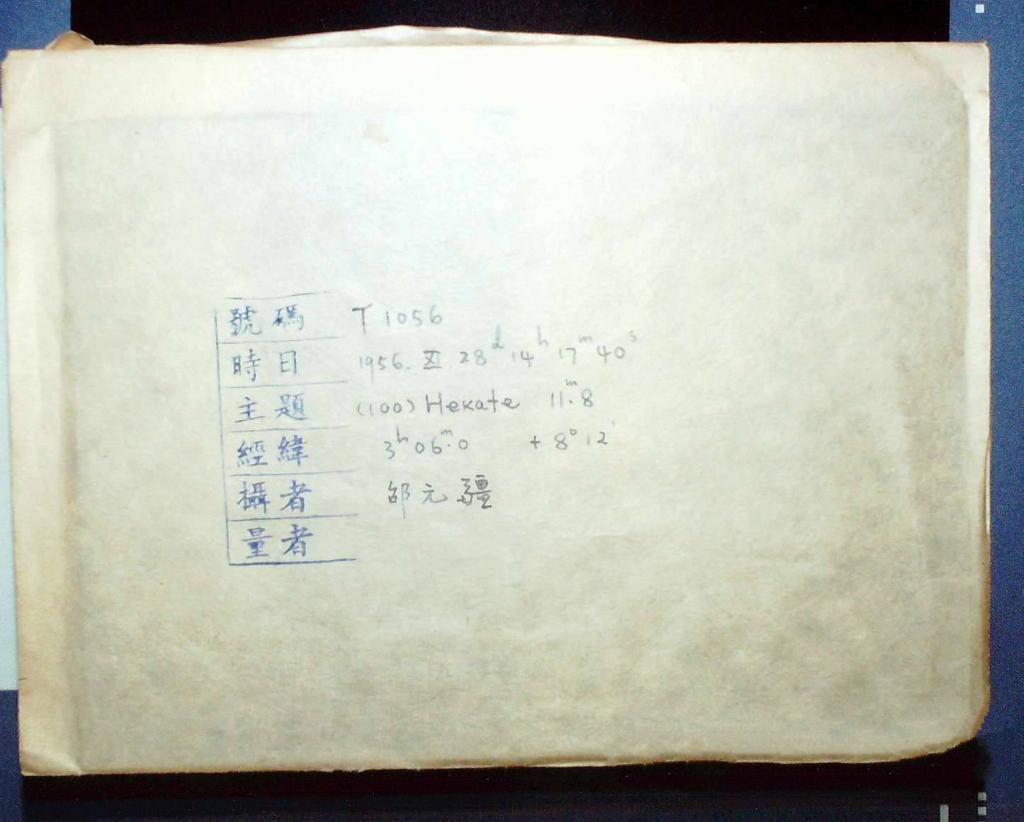 號碼 T 1056
時日 1956. XI 28ᵈ 14ʰ 17ᵐ 40ˢ
主題 (100) Hekate 11ᵐ.8
經緯 3ʰ 06ᵐ.0 + 8° 12'
攝者 邵元疆
量者